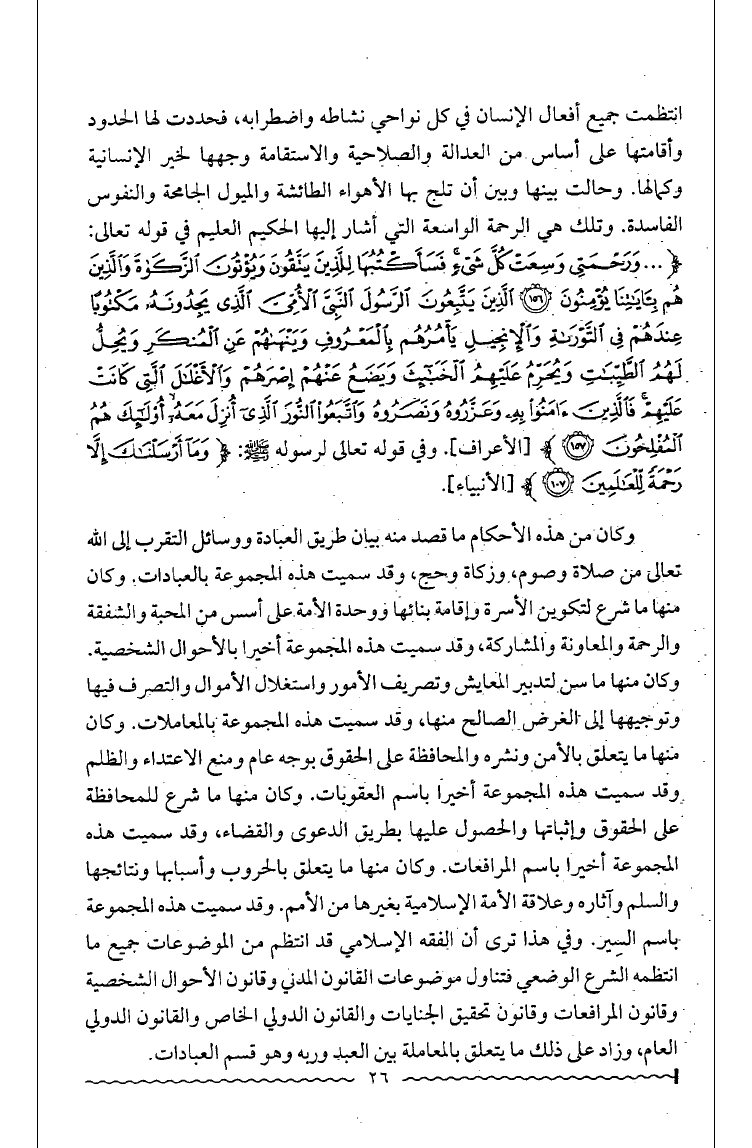 انتظمت جميع أفعال الإنسان في كل نواحي نشاطه واضطرابه، فحددت لها الحدود
وأقامتها على أساس من العدالة والصلاحية والاستقامة وجهها لخير الإنسانية
وكمالها. وحالت بينها وبين أن تلج بها الأهواء الطائشة والميول الجامحة والنفوس
الفاسدة. وتلك هي الرحمة الواسعة التي أشار إليها الحكيم العليم في قوله تعالى:
﴿... وَرَحْمَتِي وَسِعَتْ كُلَّ شَيْءٍ ۚ فَسَأَكْتُبُهَا لِلَّذِينَ يَتَّقُونَ وَيُؤْتُونَ ٱلزَّكَوٰةَ وَٱلَّذِينَ
هُم بِـَٔايَـٰتِنَا يُؤْمِنُونَ ﴿١٥٦﴾ ٱلَّذِينَ يَتَّبِعُونَ ٱلرَّسُولَ ٱلنَّبِيَّ ٱلْأُمِّيَّ ٱلَّذِي يَجِدُونَهُۥ مَكْتُوبًا
عِندَهُمْ فِي ٱلتَّوْرَىٰةِ وَٱلْإِنجِيلِ يَأْمُرُهُم بِٱلْمَعْرُوفِ وَيَنْهَىٰهُمْ عَنِ ٱلْمُنكَرِ وَيُحِلُّ
لَهُمُ ٱلطَّيِّبَـٰتِ وَيُحَرِّمُ عَلَيْهِمُ ٱلْخَبَـٰٓئِثَ وَيَضَعُ عَنْهُمْ إِصْرَهُمْ وَٱلْأَغْلَـٰلَ ٱلَّتِي كَانَتْ
عَلَيْهِمْ ۚ فَٱلَّذِينَ ءَامَنُوا۟ بِهِۦ وَعَزَّرُوهُ وَنَصَرُوهُ وَٱتَّبَعُوا۟ ٱلنُّورَ ٱلَّذِيٓ أُنزِلَ مَعَهُۥٓ ۙ أُو۟لَـٰٓئِكَ هُمُ
ٱلْمُفْلِحُونَ ﴿١٥٧﴾ ﴾ [الأعراف]. وفي قوله تعالى لرسوله ﷺ: ﴿ وَمَآ أَرْسَلْنَـٰكَ إِلَّا
رَحْمَةً لِّلْعَـٰلَمِينَ ﴿١٠٧﴾ ﴾ [الأنبياء].
وكان من هذه الأحكام ما قصد منه بيان طريق العبادة ووسائل التقرب إلى الله
تعالى من صلاة وصوم، وزكاة وحج، وقد سميت هذه المجموعة بالعبادات. وكان
منها ما شرع لتكوين الأسرة وإقامة بنائها ووحدة الأمة على أسس من المحبة والشفقة
والرحمة والمعاونة والمشاركة، وقد سميت هذه المجموعة أخيرا بالأحوال الشخصية.
وكان منها ما سن لتدبير المعايش وتصريف الأمور واستغلال الأموال والتصرف فيها
وتوجيهها إلى الغرض الصالح منها، وقد سميت هذه المجموعة بالمعاملات. وكان
منها ما يتعلق بالأمن ونشره والمحافظة على الحقوق بوجه عام ومنع الاعتداء والظلم
وقد سميت هذه المجموعة أخيرا باسم العقوبات. وكان منها ما شرع للمحافظة
على الحقوق وإثباتها والحصول عليها بطريق الدعوى والقضاء، وقد سميت هذه
المجموعة أخيرا باسم المرافعات. وكان منها ما يتعلق بالحروب وأسبابها ونتائجها
والسلم وآثاره وعلاقة الأمة الإسلامية بغيرها من الأمم. وقد سميت هذه المجموعة
باسم السِير. وفي هذا ترى أن الفقه الإسلامي قد انتظم من الموضوعات جميع ما
انتظمه الشرع الوضعي فتناول موضوعات القانون المدني وقانون الأحوال الشخصية
وقانون المرافعات وقانون تحقيق الجنايات والقانون الدولي الخاص والقانون الدولي
العام، وزاد على ذلك ما يتعلق بالمعاملة بين العبد وربه وهو قسم العبادات.
٢٦